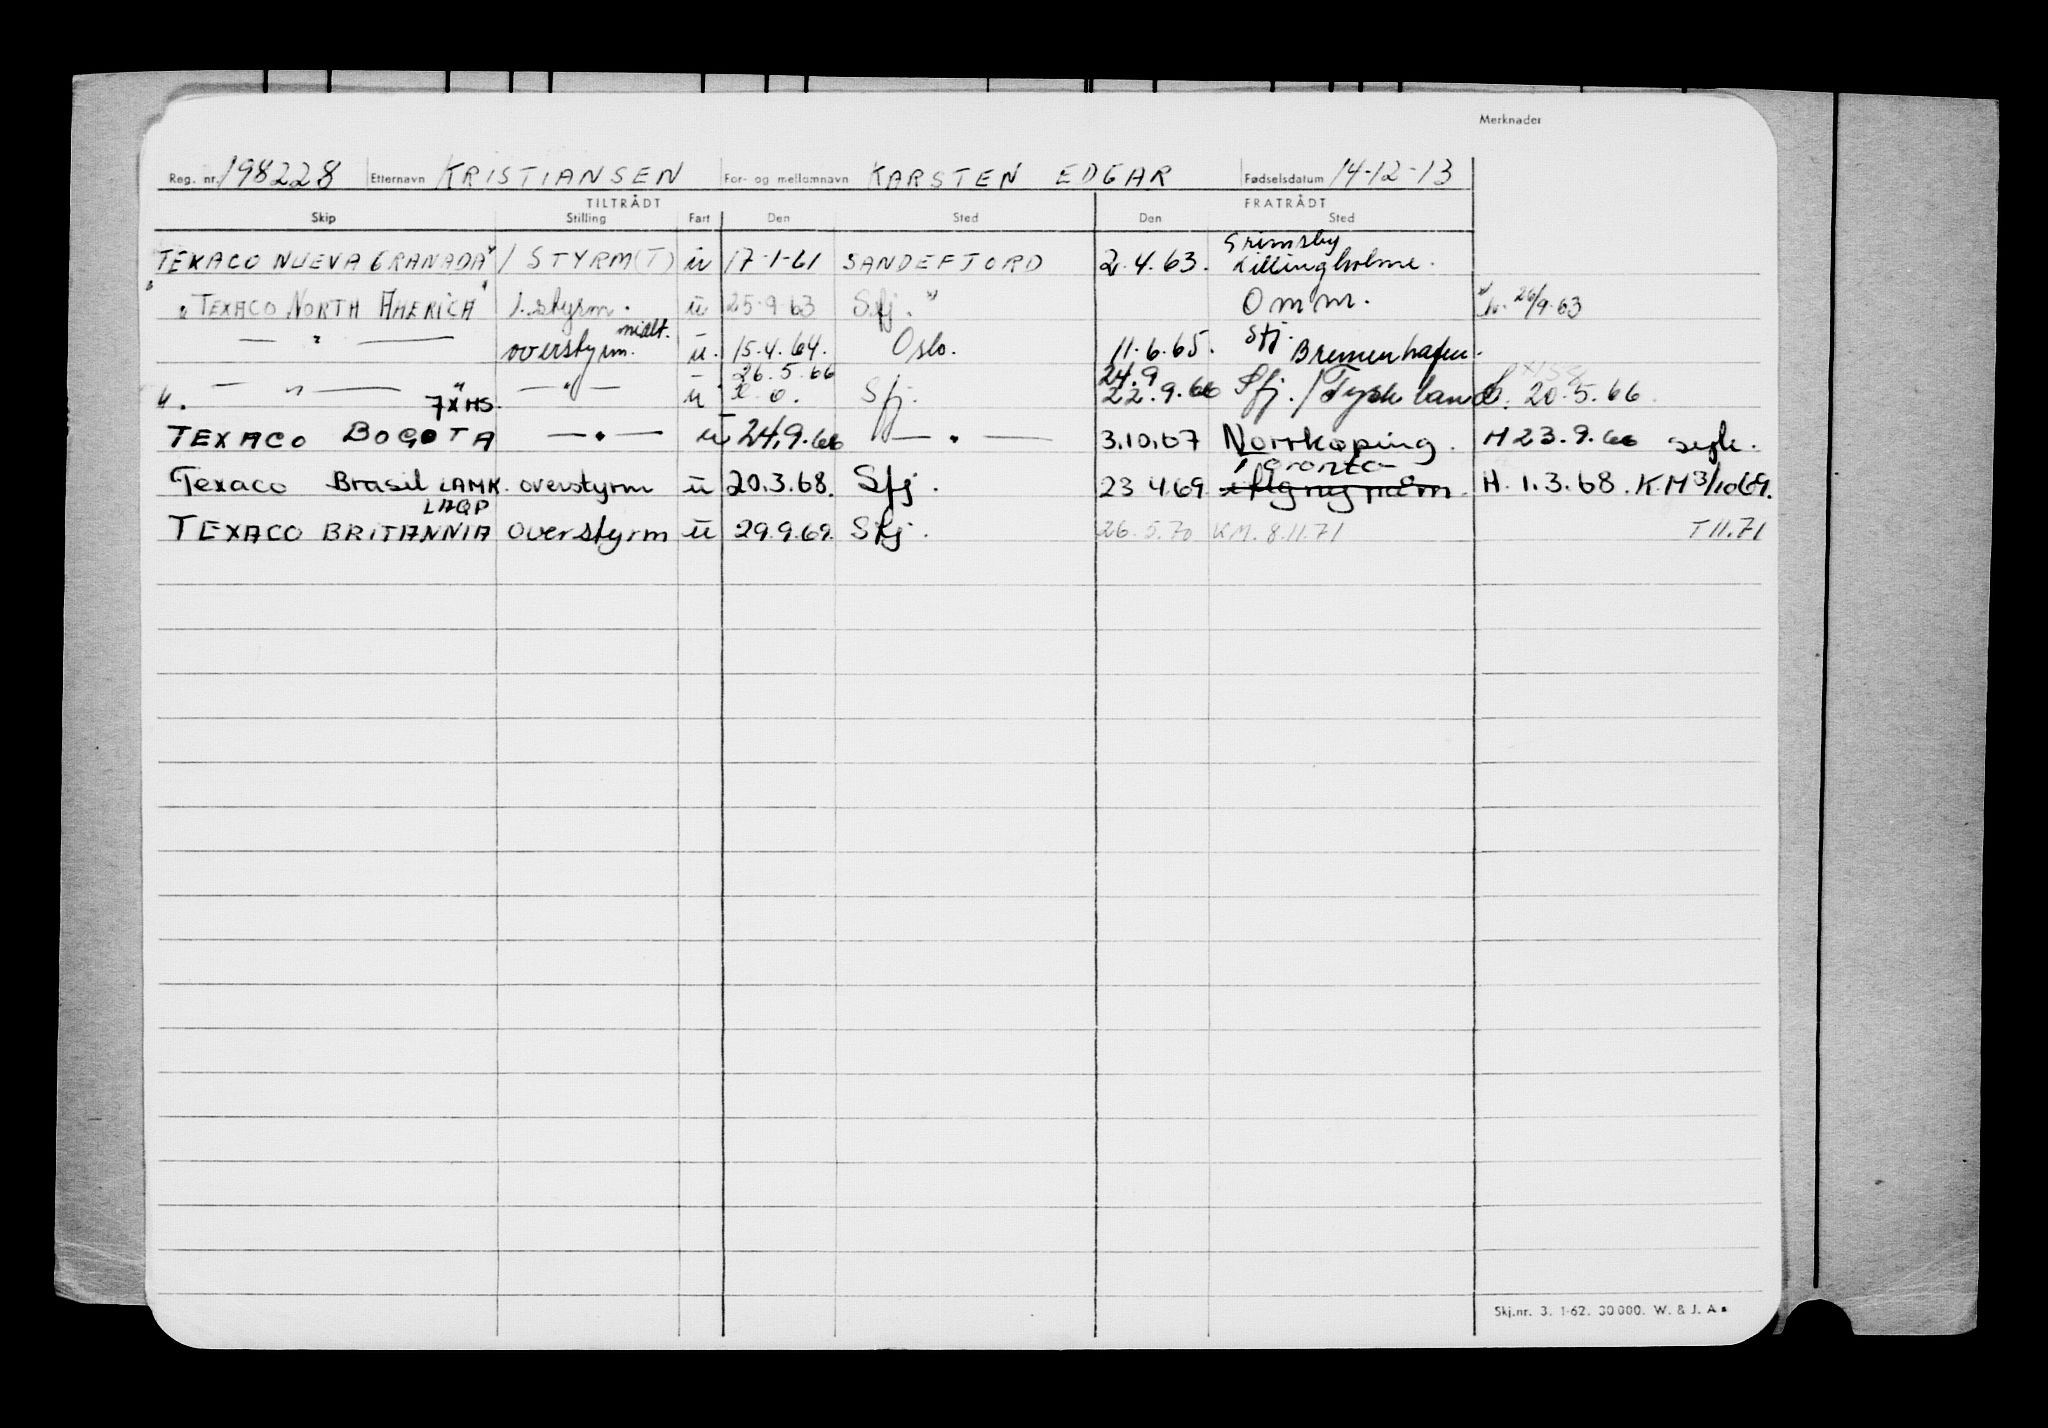 Merknader
Reg. nr. 198228 Etternavn KRISTIANSEN For- og mellomnavn KARSTEN EDGAR Fødselsdatum 14-12-13
TILTRÅDT FRATRÅDT
Skip Stilling Fart Den Sted Den Sted
Grimsby
"TEXACO NUEVA GRANADA" 1 STYRM(T) ü 17-1-61 SANDEFJORD 2.4.63. Killingholme.
"TEXACO NORTH AMERICA" 1. styrm. ü 25.9.63 Sfj. " Omm. 26/9.63
midlt. Sfj.
— " — overstyrm. ü. 15.4.64. Oslo. 11.6.65. Bremenhafen.
26.5.66 24.9
— " — — " — ü Sfj. 22.9.66 Sfj./Tyskland 20.5.66.
7XHS.
TEXACO BOGOTA — " — ü 24.9.66 — " — 3.10.67 Norrkøping. H 23.9.66
Toronto
Texaco Brasil LAMK. overstyrm ü 20.3.68. Sfj. 23.4.69 H. 1.3.68. K.M 3/10 69.
LAQP
TEXACO BRITANNIA overstyrm ü 29.9.69. Sfj. 26.5.70 KM. 8.11.71 T 11.71
Skj.nr. 3. 1-62. 30 000. W. & J. A.s